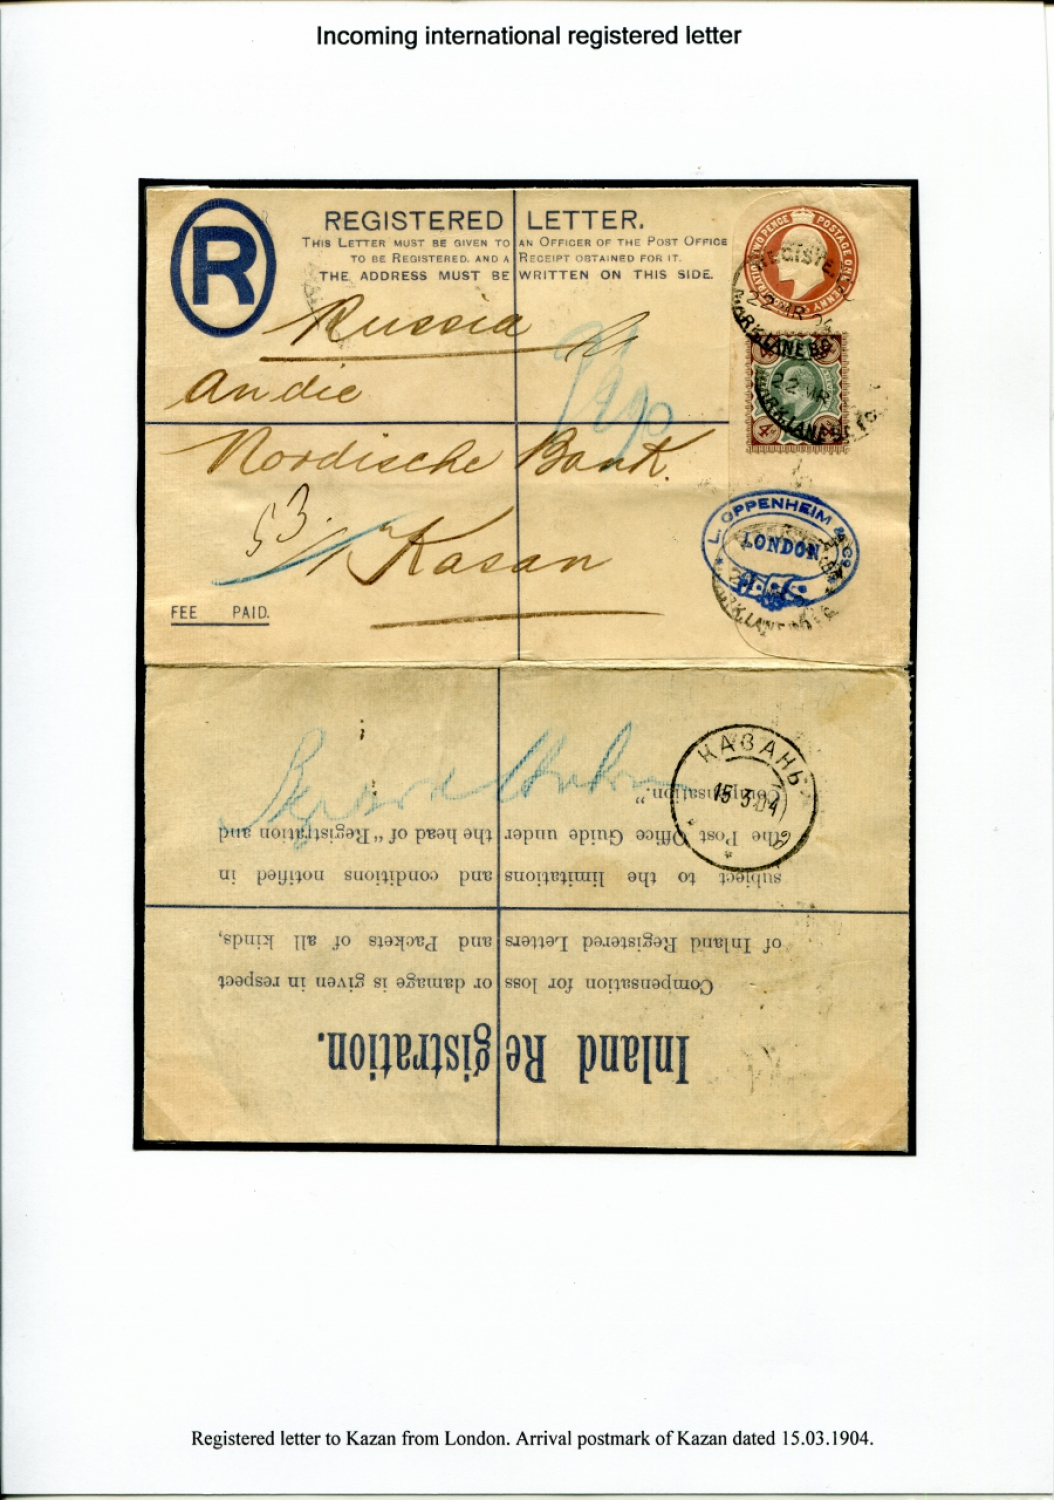 Incoming international registered letter
R
REGISTERED LETTER.
THIS LETTER MUST BE GIVEN TO AN OFFICER OF THE POST OFFICE
TO BE REGISTERED, AND A RECEIPT OBTAINED FOR IT.
THE ADDRESS MUST BE WRITTEN ON THIS SIDE.
POSTAGE ONE PENNY
TWO PENCE
REGISTERED
22 MR 04
MARK LANE B.O.
Russia
4D 4D
22 MR
MARK LANE B.O. E.C.
4D
An die
Nordische Bank.
53
Kasan
L. OPPENHEIM & Co.
LONDON
MARK LANE
FEE PAID.
КАЗАНЬ
15 3 04
Inland Registration.
Compensation for loss or damage is given in respect
of Inland Registered Letters and Packets of all kinds,
subject to the limitations and conditions notified in
the Post Office Guide under the head of "Registration and
Compensation."
Registered letter to Kazan from London. Arrival postmark of Kazan dated 15.03.1904.